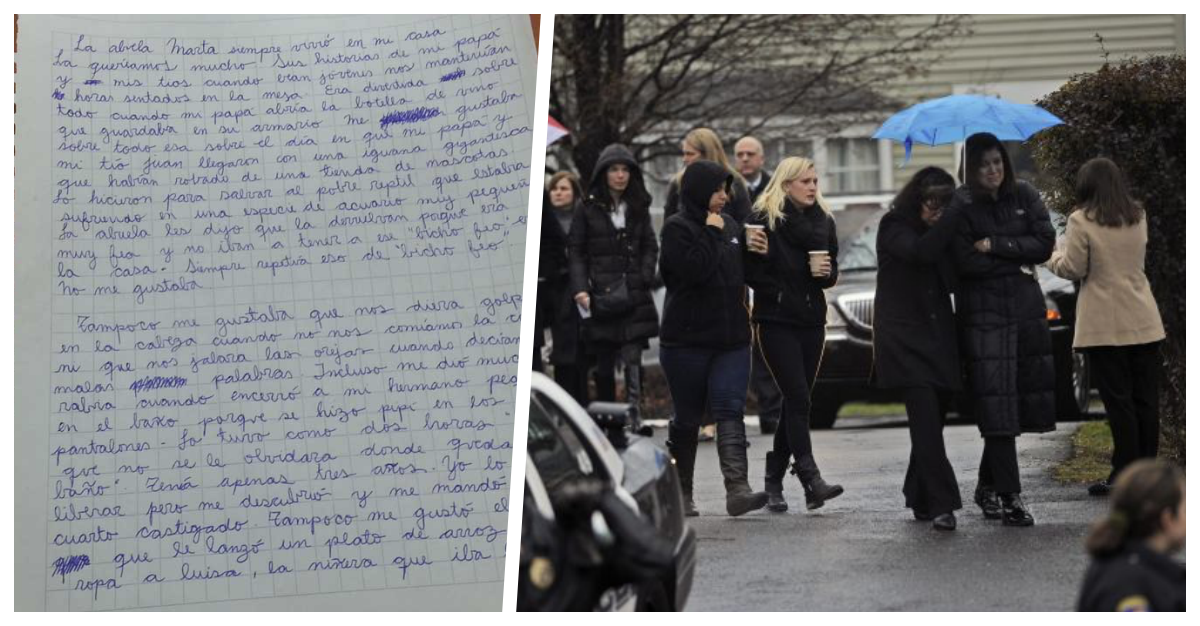 La abuela Marta siempre vivió en mi casa
La queríamos mucho. Sus historias de mi papá
y mis tios cuando eran jóvenes nos mantenían
horas sentados en la mesa. Era divertida sobre
todo cuando mi papá abría la botella de vino
que guardaba en su armario. Me gustaba
sobre todo esa sobre el día en que mi papá y
mi tío Juan llegaron con una iguana gigantesca
que habían robado de una tienda de mascotas.
Lo hicieron para salvar al pobre reptil que estaba
sufriendo en una especie de acuario muy pequeñ
La abuela les dijo que la devuelvan porque era
muy fea y no iban a tener a ese "bicho feo" e
la casa. Siempre repetía eso de "bicho feo",
no me gustaba
Tampoco me gustaba que nos diera golp
en la cabeza cuando no nos comíamos la c
ni que nos jalara las orejas cuando decíam
malas palabras. Incluso me dió muc
rabia cuando encerró a mi hermano peq
en el baño porque se hizo pipí en los
pantalones. Lo tuvo como dos horas
que no se le olvidara donde queda
baño". Tenía apenas tres años. Yo lo
liberar pero me descubrió y me mandó
cuarto castigado. Tampoco me gustó el
que le lanzó un plato de arroz
ropa a luisa, la niñera que iba